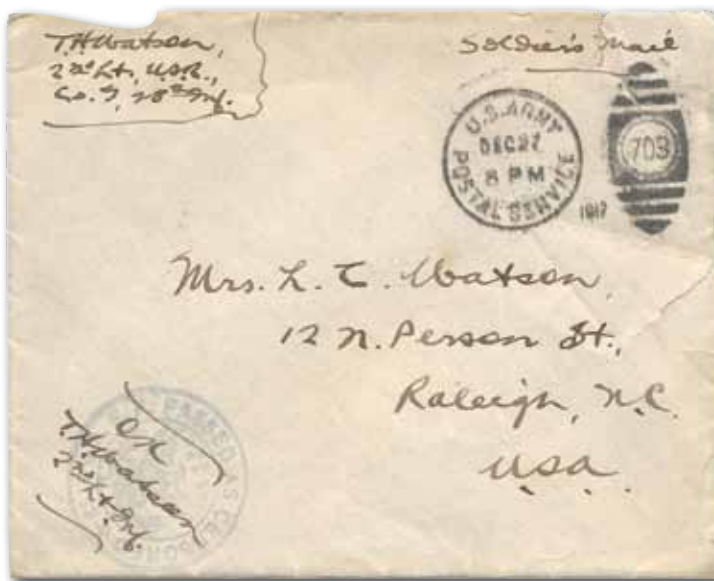 T.H. Watson,
2nd Lt., U.S.R.,
28th Inf.
Soldier's Mail
U.S. ARMY
DEC 27
8 PM
POSTAL SERVICE
1917
703
Mrs. L. T. Watson,
12 N. Person St.,
Raleigh, N.C.
U.S.A.
PASSED AS CENSORED
OK
T.H. Watson
2nd Lt. Inf.